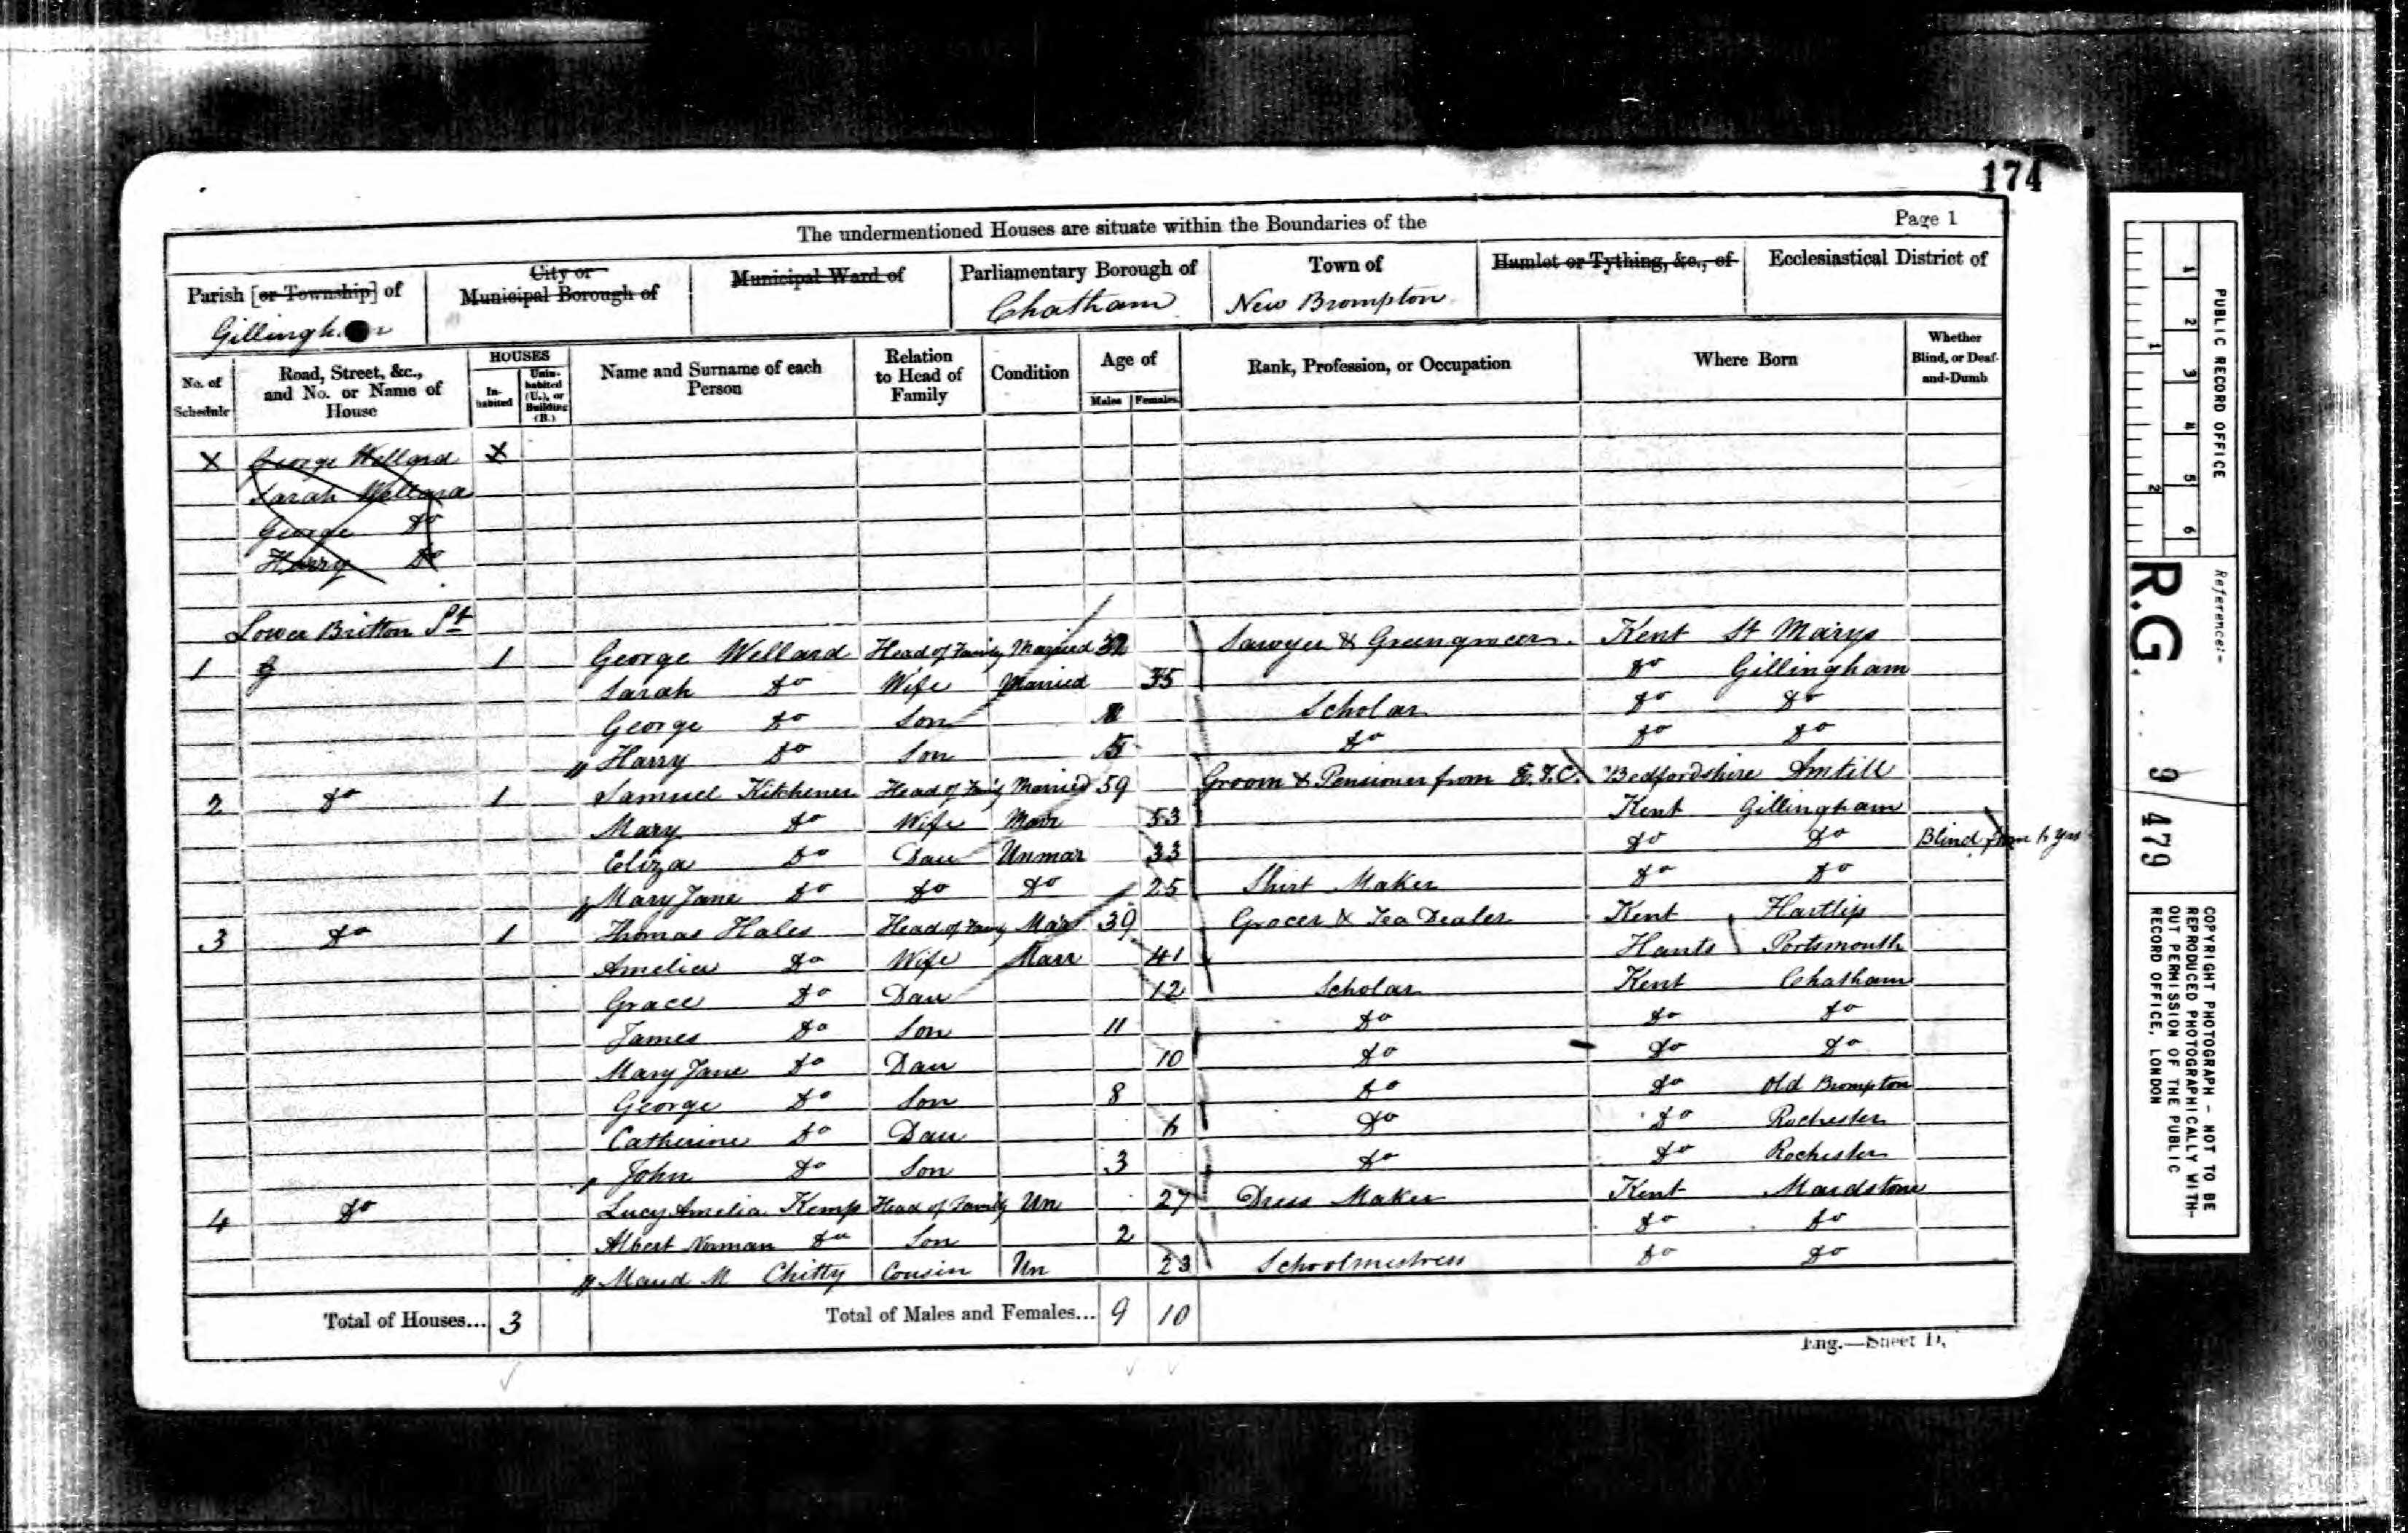 174
The undermentioned Houses are situate within the Boundaries of the
Page 1
Parish [or Township] of
Gillingham
City or Municipal Borough of
Municipal Ward of
Parliamentary Borough of
Chatham
Town of
New Brompton
Hamlet or Tything, &c., of
Ecclesiastical District of
No. of Schedule
Road, Street, &c., and No. or Name of House
HOUSES
Inhabited
Uninhabited (U.), or Building (B.)
Name and Surname of each Person
Relation to Head of Family
Condition
Age of
Males Females
Rank, Profession, or Occupation
Where Born
Whether Blind, or Deaf-and-Dumb
X George Wellard X
Sarah Wellard
George Do
Harry Do
Lower Britton St
1 1 George Wellard Head of Family Married Sawyer & Greengrocer Kent St Marys
Sarah Do Wife Married 35 Do Gillingham
George Do Son Scholar Do Do
" Harry Do Son Do Do Do
2 Do 1 Samuel Kitchener Head of Family Married 59 Groom & Pensioner from E.I.C. Bedfordshire Amtill
Mary Do Wife Marr 53 Kent Gillingham
Eliza Do Dau Unmar 33 Do Do Blind from
" Mary Jane Do Do Do 25 Shirt Maker Do Do
3 Do 1 Thomas Hales Head of Family Marr 39 Grocer & Tea Dealer Kent Hartlip
Amelia Do Wife Marr 41 Hants Portsmouth
Grace Do Dau 12 Scholar Kent Chatham
James Do Son 11 Do Do Do
Mary Jane Do Dau 10 Do Do Do
George Do Son 8 Do Do Old Brompton
Catherine Do Dau 6 Do Do Rochester
John Do Son 3 Do Do Rochester
4 Do Lucy Amelia Kemp Head of Family Un 27 Dress Maker Kent Maidstone
Albert Norman Do Son 2 Do Do
" Maud M Chitty Cousin Un 23 Schoolmistress Do Do
Total of Houses... 3
Total of Males and Females... 9 10
Eng.—Sheet D.
PUBLIC RECORD OFFICE
1 2 3 4 5 6
1 2
Reference:-
R.G. 9/479
COPYRIGHT PHOTOGRAPH - NOT TO BE
REPRODUCED PHOTOGRAPHICALLY WITH-
OUT PERMISSION OF THE PUBLIC
RECORD OFFICE, LONDON